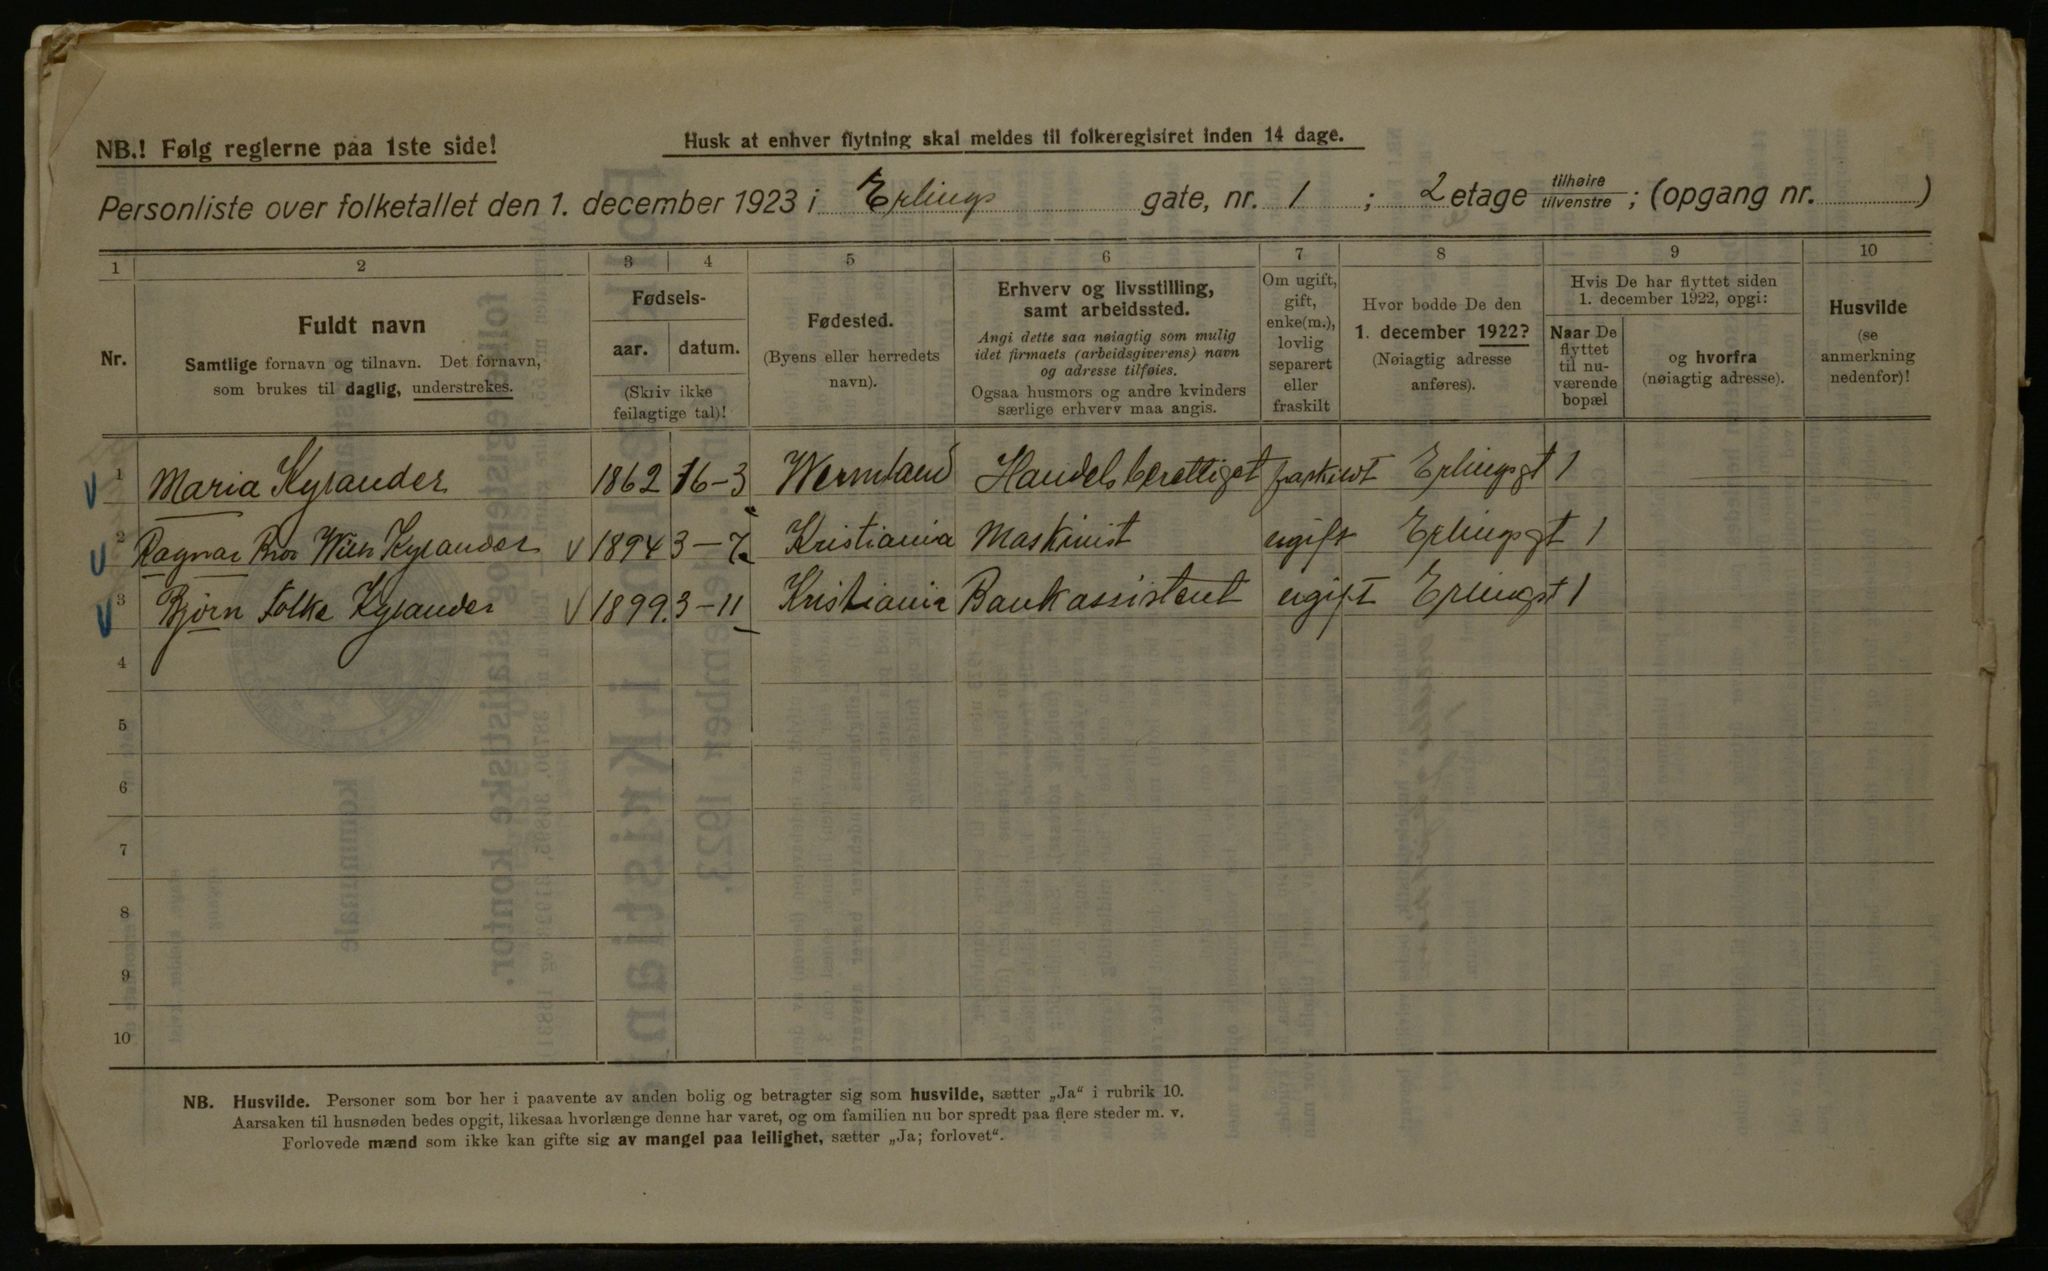 NB.! Følg reglerne paa 1ste side!
Husk at enhver flytning skal meldes til folkeregistret inden 14 dage.
Personliste over folketallet den 1. december 1923 i Erlings gate, nr. 1 ; 2 etage tilhøire tilvenstre ; (opgang nr. )
1 2 3 4 5 6 7 8 9 10
Nr.
Fuldt navn
Samtlige fornavn og tilnavn. Det fornavn,
som brukes til daglig, understrekes.
Fødsels-
aar. datum.
(Skriv ikke
feilagtige tal)!
Fødested.
(Byens eller herredets
navn).
Erhverv og livsstilling,
samt arbeidssted.
Angi dette saa nøiagtig som mulig
idet firmaets (arbeidsgiverens) navn
og adresse tilføies.
Ogsaa husmors og andre kvinders
særlige erhverv maa angis.
Om ugift,
gift,
enke(m.),
lovlig
separert
eller
fraskilt
Hvor bodde De den
1. december 1922?
(Nøiagtig adresse
anføres).
Hvis De har flyttet siden
1. december 1922, opgi:
Naar De
flyttet
til nu-
værende
bopæl
og hvorfra
(nøiagtig adresse).
Husvilde
(se
anmerkning
nedenfor)!
1 Maria Kylander 1862 16-3 Wermland Handelsberettiget fraskilt Erlingsgt 1
2 Ragnar Kylander 1894 3-7 Kristiania Maskinist ugift Erlingsgt 1
3 Bjørn Folke Kylander 1899 3-11 Kristiania Bankassistent ugift Erlingsgt 1
4
5
6
7
8
9
10
NB. Husvilde. Personer som bor her i paavente av anden bolig og betragter sig som husvilde, sætter „Ja“ i rubrik 10.
Aarsaken til husnøden bedes opgit, likesaa hvorlænge denne har varet, og om familien nu bor spredt paa flere steder m. v.
Forlovede mænd som ikke kan gifte sig av mangel paa leilighet, sætter „Ja; forlovet“.